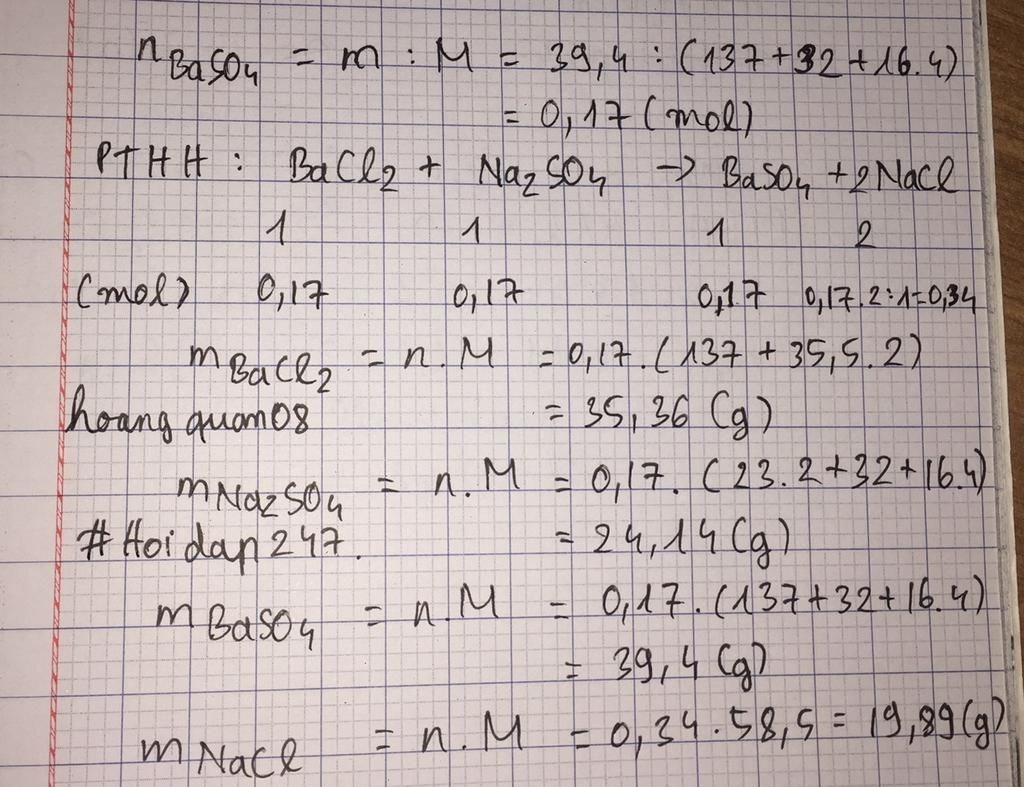 nBaSO4 = m : M = 39,4 : (137+32+16.4)
= 0,17 (mol)
PTHH : BaCl2 + Na2SO4 → BaSO4 + 2NaCl
1 1 1 2
(mol) 0,17 0,17 0,17 0,17.2:1=0,34
mBaCl2 = n.M = 0,17.(137 + 35,5.2)
hoangquan08 = 35,36 (g)
mNa2SO4 = n.M = 0,17.(23.2+32+16.4)
#Hoidap247. = 24,14 (g)
mBaSO4 = n.M = 0,17.(137+32+16.4)
= 39,4 (g)
mNaCl = n.M = 0,34.58,5 = 19,89 (g)